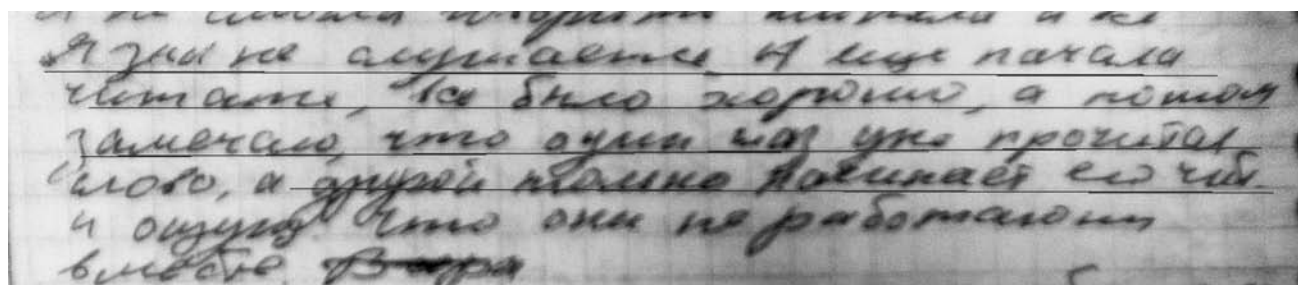 и не смогла
язык не слушается. А еще начала
читать, все было хорошо, а потом
замечаю, что один глаз уже прочитал
слово, а другой только начинает его чит.
и ощущ. что они не работают
вместе.